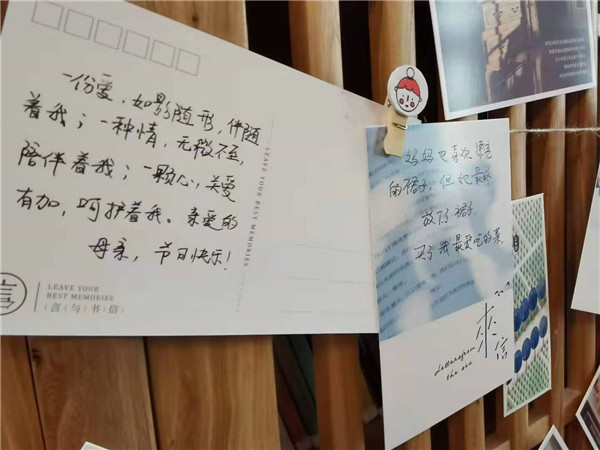 一份爱，如影随形，伴随
着我；一种情，无微不至，
陪伴着我；一颗心，关爱
有加，呵护着我。亲爱的
母亲，节日快乐！
LEAVE YOUR BEST MEMORIES
言
LEAVE YOUR
BEST MEMORIES
｛言与书信｝
妈妈也喜欢漂亮
的裙子，但她最终
放下了裙子
买了我最爱吃的菜
来信
letters from
the sea